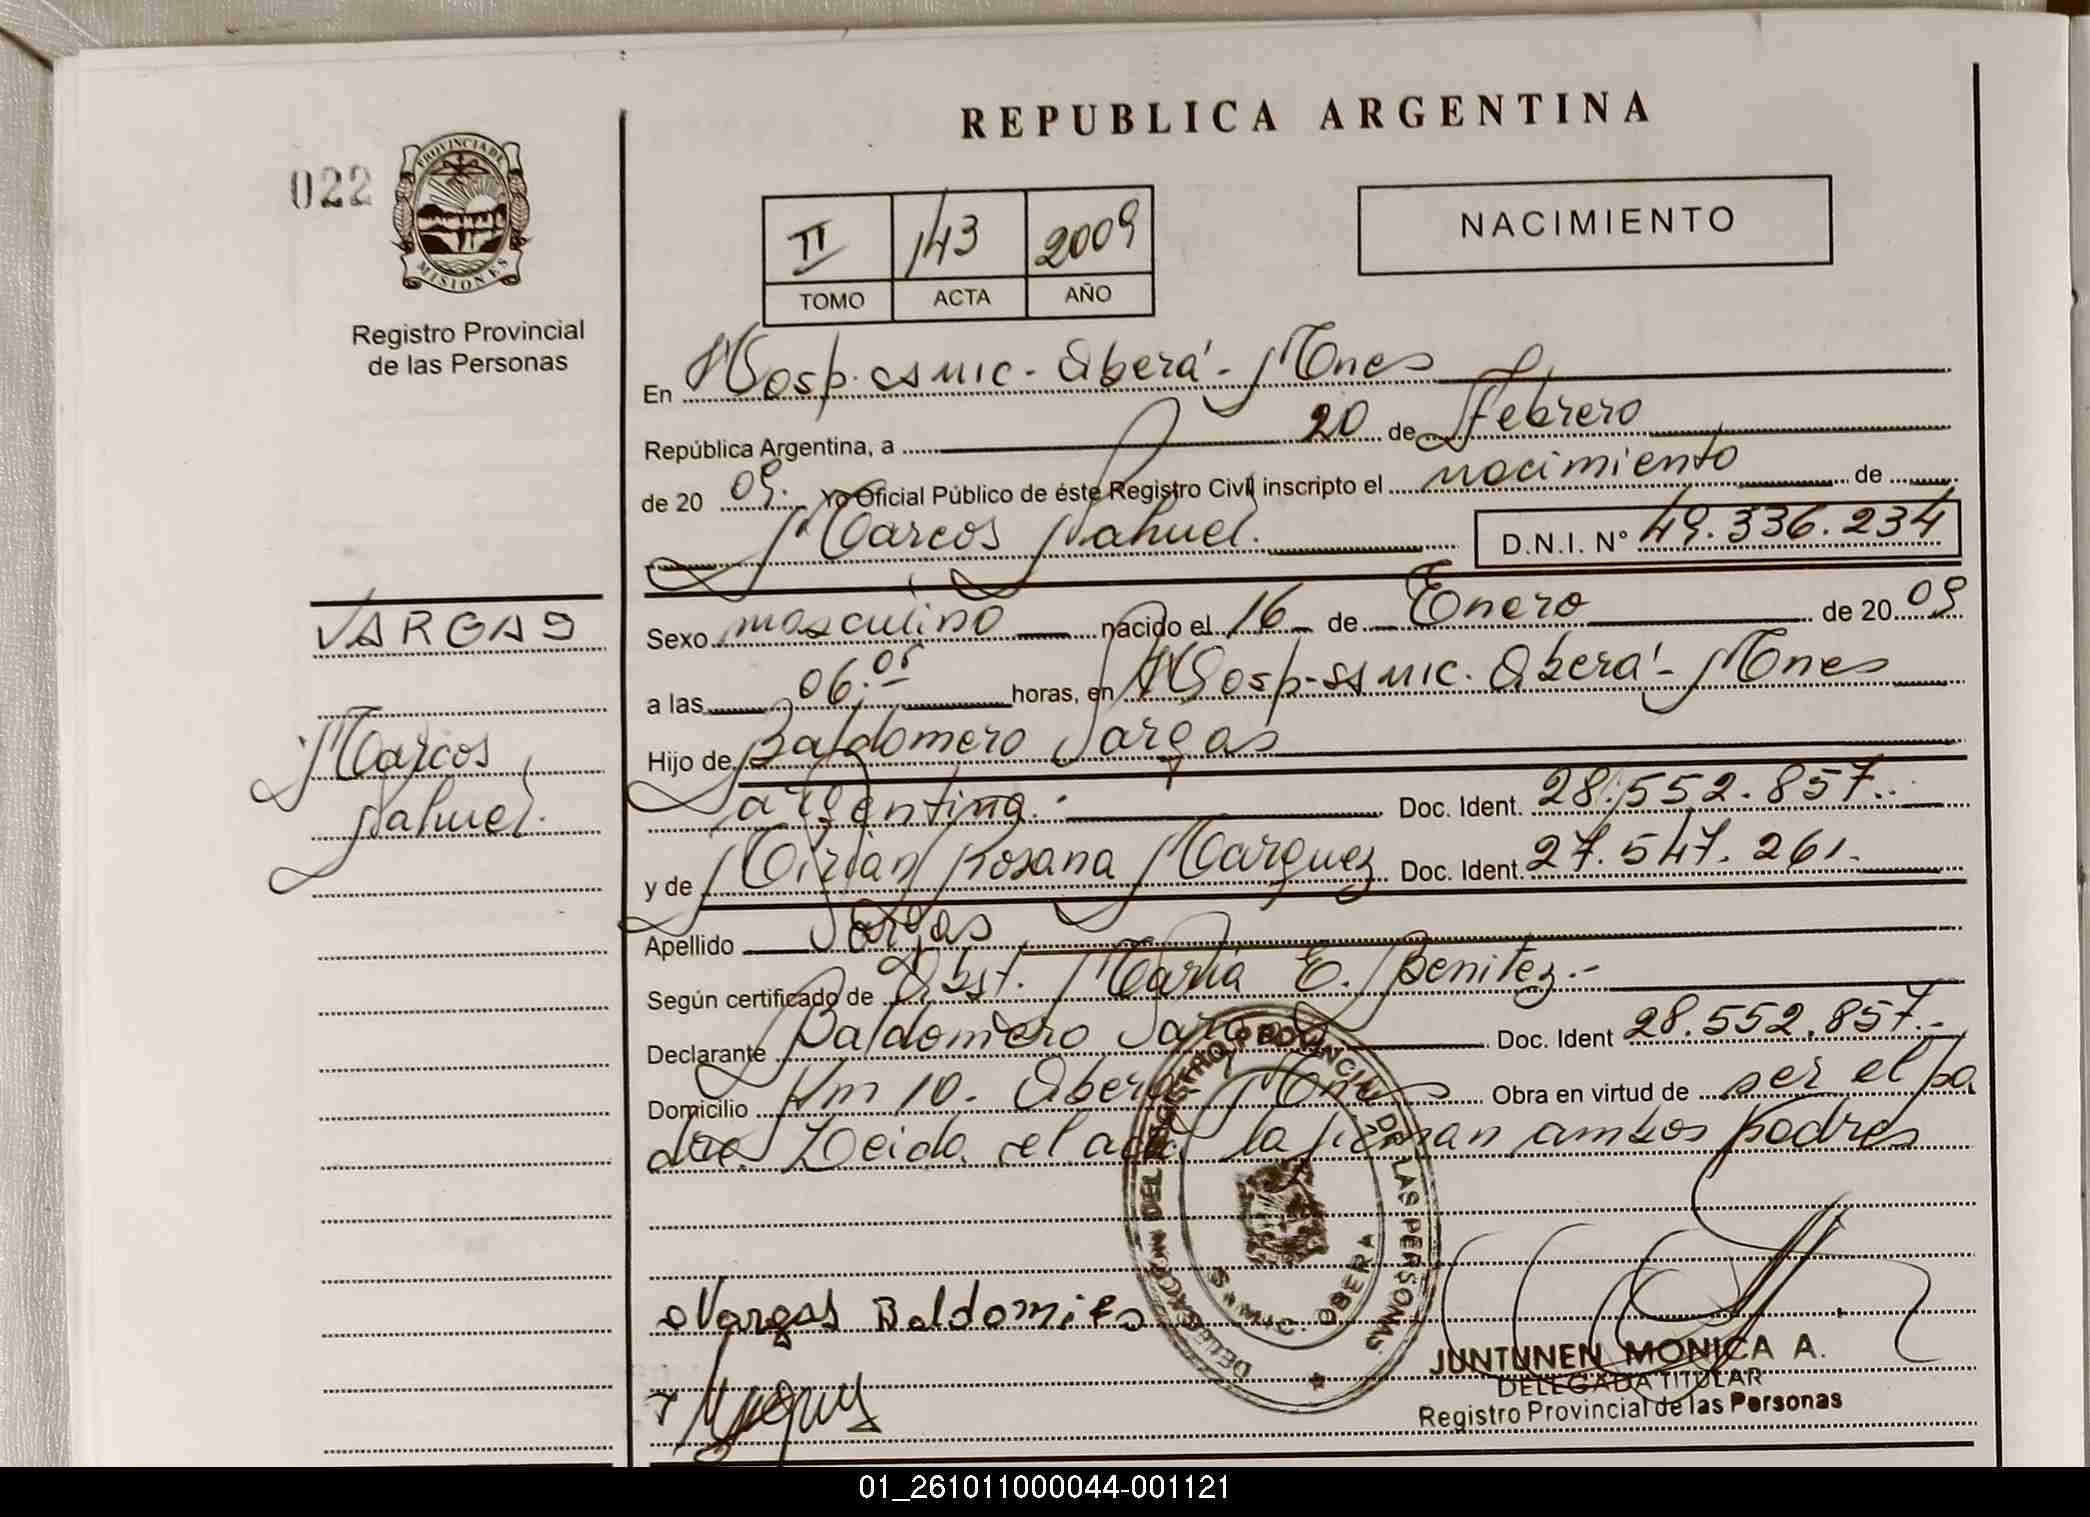 REPUBLICA ARGENTINA
022
PROVINCIA DE
MISIONES
Registro Provincial
de las Personas
II 143 2009
TOMO ACTA AÑO
NACIMIENTO
En Hosp. ssmic - Oberá - Mnes
República Argentina, a 20 de febrero
de 20 09. Yo Oficial Público de éste Registro Civil inscripto el nacimiento de
Marcos Nahuel. D.N.I. N° 49.336.234
VARGAS
Marcos
Nahuel.
Sexo masculino nacido el 16 de Enero de 20 09
a las 06.05 horas, en Hosp-ssmic. Oberá - Mnes
Hijo de Baldomero Vargas
argentina. Doc. Ident. 28.552.857.
y de Mirian Rosana Marquez Doc. Ident. 27.547.261.
Apellido Vargas
Según certificado de Obst. Maria E. Benitez.-
Declarante Baldomero Vargas Doc. Ident 28.552.857.-
Domicilio Km 10. Oberá - Mnes Obra en virtud de ser el pa
dre. Leida el acta la firman ambos padres
DELEGACION DEL REGISTRO PROVINCIAL DE LAS PERSONAS
OBERA
Vargas Baldomero
JUNTUNEN MONICA A.
DELEGADA TITULAR
Registro Provincial de las Personas
01_261011000044-001121